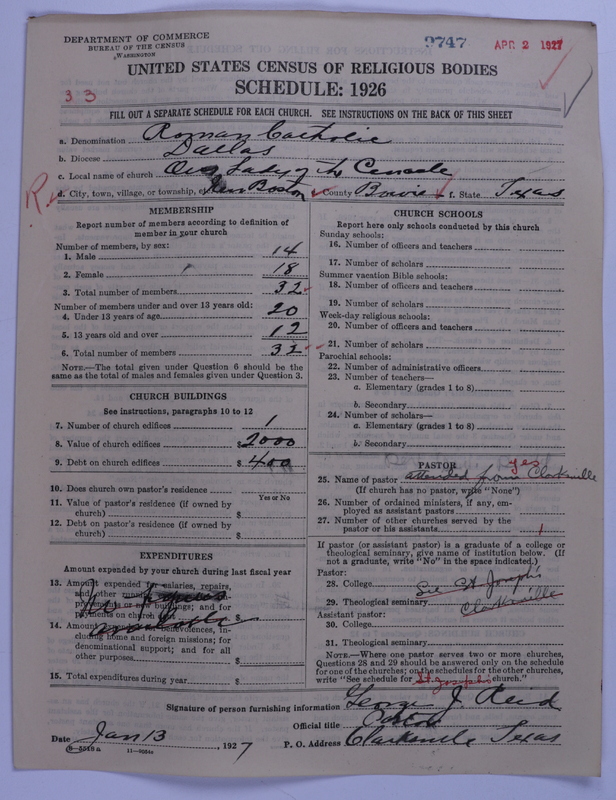 DEPARTMENT OF COMMERCE
BUREAU OF THE CENSUS
WASHINGTON
9747
APR 2 1927
UNITED STATES CENSUS OF RELIGIOUS BODIES
SCHEDULE: 1926
33
FILL OUT A SEPARATE SCHEDULE FOR EACH CHURCH. SEE INSTRUCTIONS ON THE BACK OF THIS SHEET
a. Denomination Roman Catholic
b. Diocese Dallas
c. Local name of church Our Lady of the Cenacle
R
d. City, town, village, or township, New Boston County Bowie f. State Texas
MEMBERSHIP
Report number of members according to definition of
member in your church
Number of members, by sex:
1. Male 14
2. Female 18
3. Total number of members 32
Number of members under and over 13 years old:
4. Under 13 years of age 20
5. 13 years old and over 12
6. Total number of members 32
NOTE.—The total given under Question 6 should be
same as the total of males and females given under Question 3.
CHURCH BUILDINGS
See instructions, paragraphs 10 to 12
7. Number of church edifices 1
8. Value of church edifices $2000
9. Debt on church edifices $400
10. Does church own pastor's residence
Yes or No
11. Value of pastor's residence (if owned by
church) $
12. Debt on pastor's residence (if owned by
church) $
EXPENDITURES
Amount expended by your church during last fiscal year
13. Amount expended for salaries, repairs,
and other
new buildings; and for
payments on church debt
No figures
available
14. Amount benevolences, in-
cluding home and foreign missions; for
denominational support; and for all
other purposes $
15. Total expenditures during year $
CHURCH SCHOOLS
Report here only schools conducted by this church
Sunday schools:
16. Number of officers and teachers
17. Number of scholars
Summer vacation Bible schools:
18. Number of officers and teachers
19. Number of scholars
Week-day religious schools:
20. Number of officers and teachers
21. Number of scholars
Parochial schools:
22. Number of administrative officers
23. Number of teachers—
a. Elementary (grades 1 to 8)
b. Secondary
24. Number of scholars—
a. Elementary (grades 1 to 8)
b. Secondary
PASTOR yes
25. Name of pastor attended from Clarksville
(If church has no pastor, write "None")
26. Number of ordained ministers, if any, em-
ployed as assistant pastors
27. Number of other churches served by the
pastor or his assistants 1
If pastor (or assistant pastor) is a graduate of a college or
theological seminary, give name of institution below. (If
not a graduate, write "No" in the space indicated.)
Pastor:
28. College See St Joseph's
29. Theological seminary Clarksville
Assistant pastor:
30. College
31. Theological seminary
NOTE.—Where one pastor serves two or more churches,
Questions 28 and 29 should be answered only on the schedule
for one of the churches; on the schedules for the other churches,
write "See schedule for St. Joseph's church."
Signature of person furnishing information George J. Reid
Official title Pastor
Date Jan 13, 1927
P. O. Address Clarksville Texas
8—5518a 11—9354c